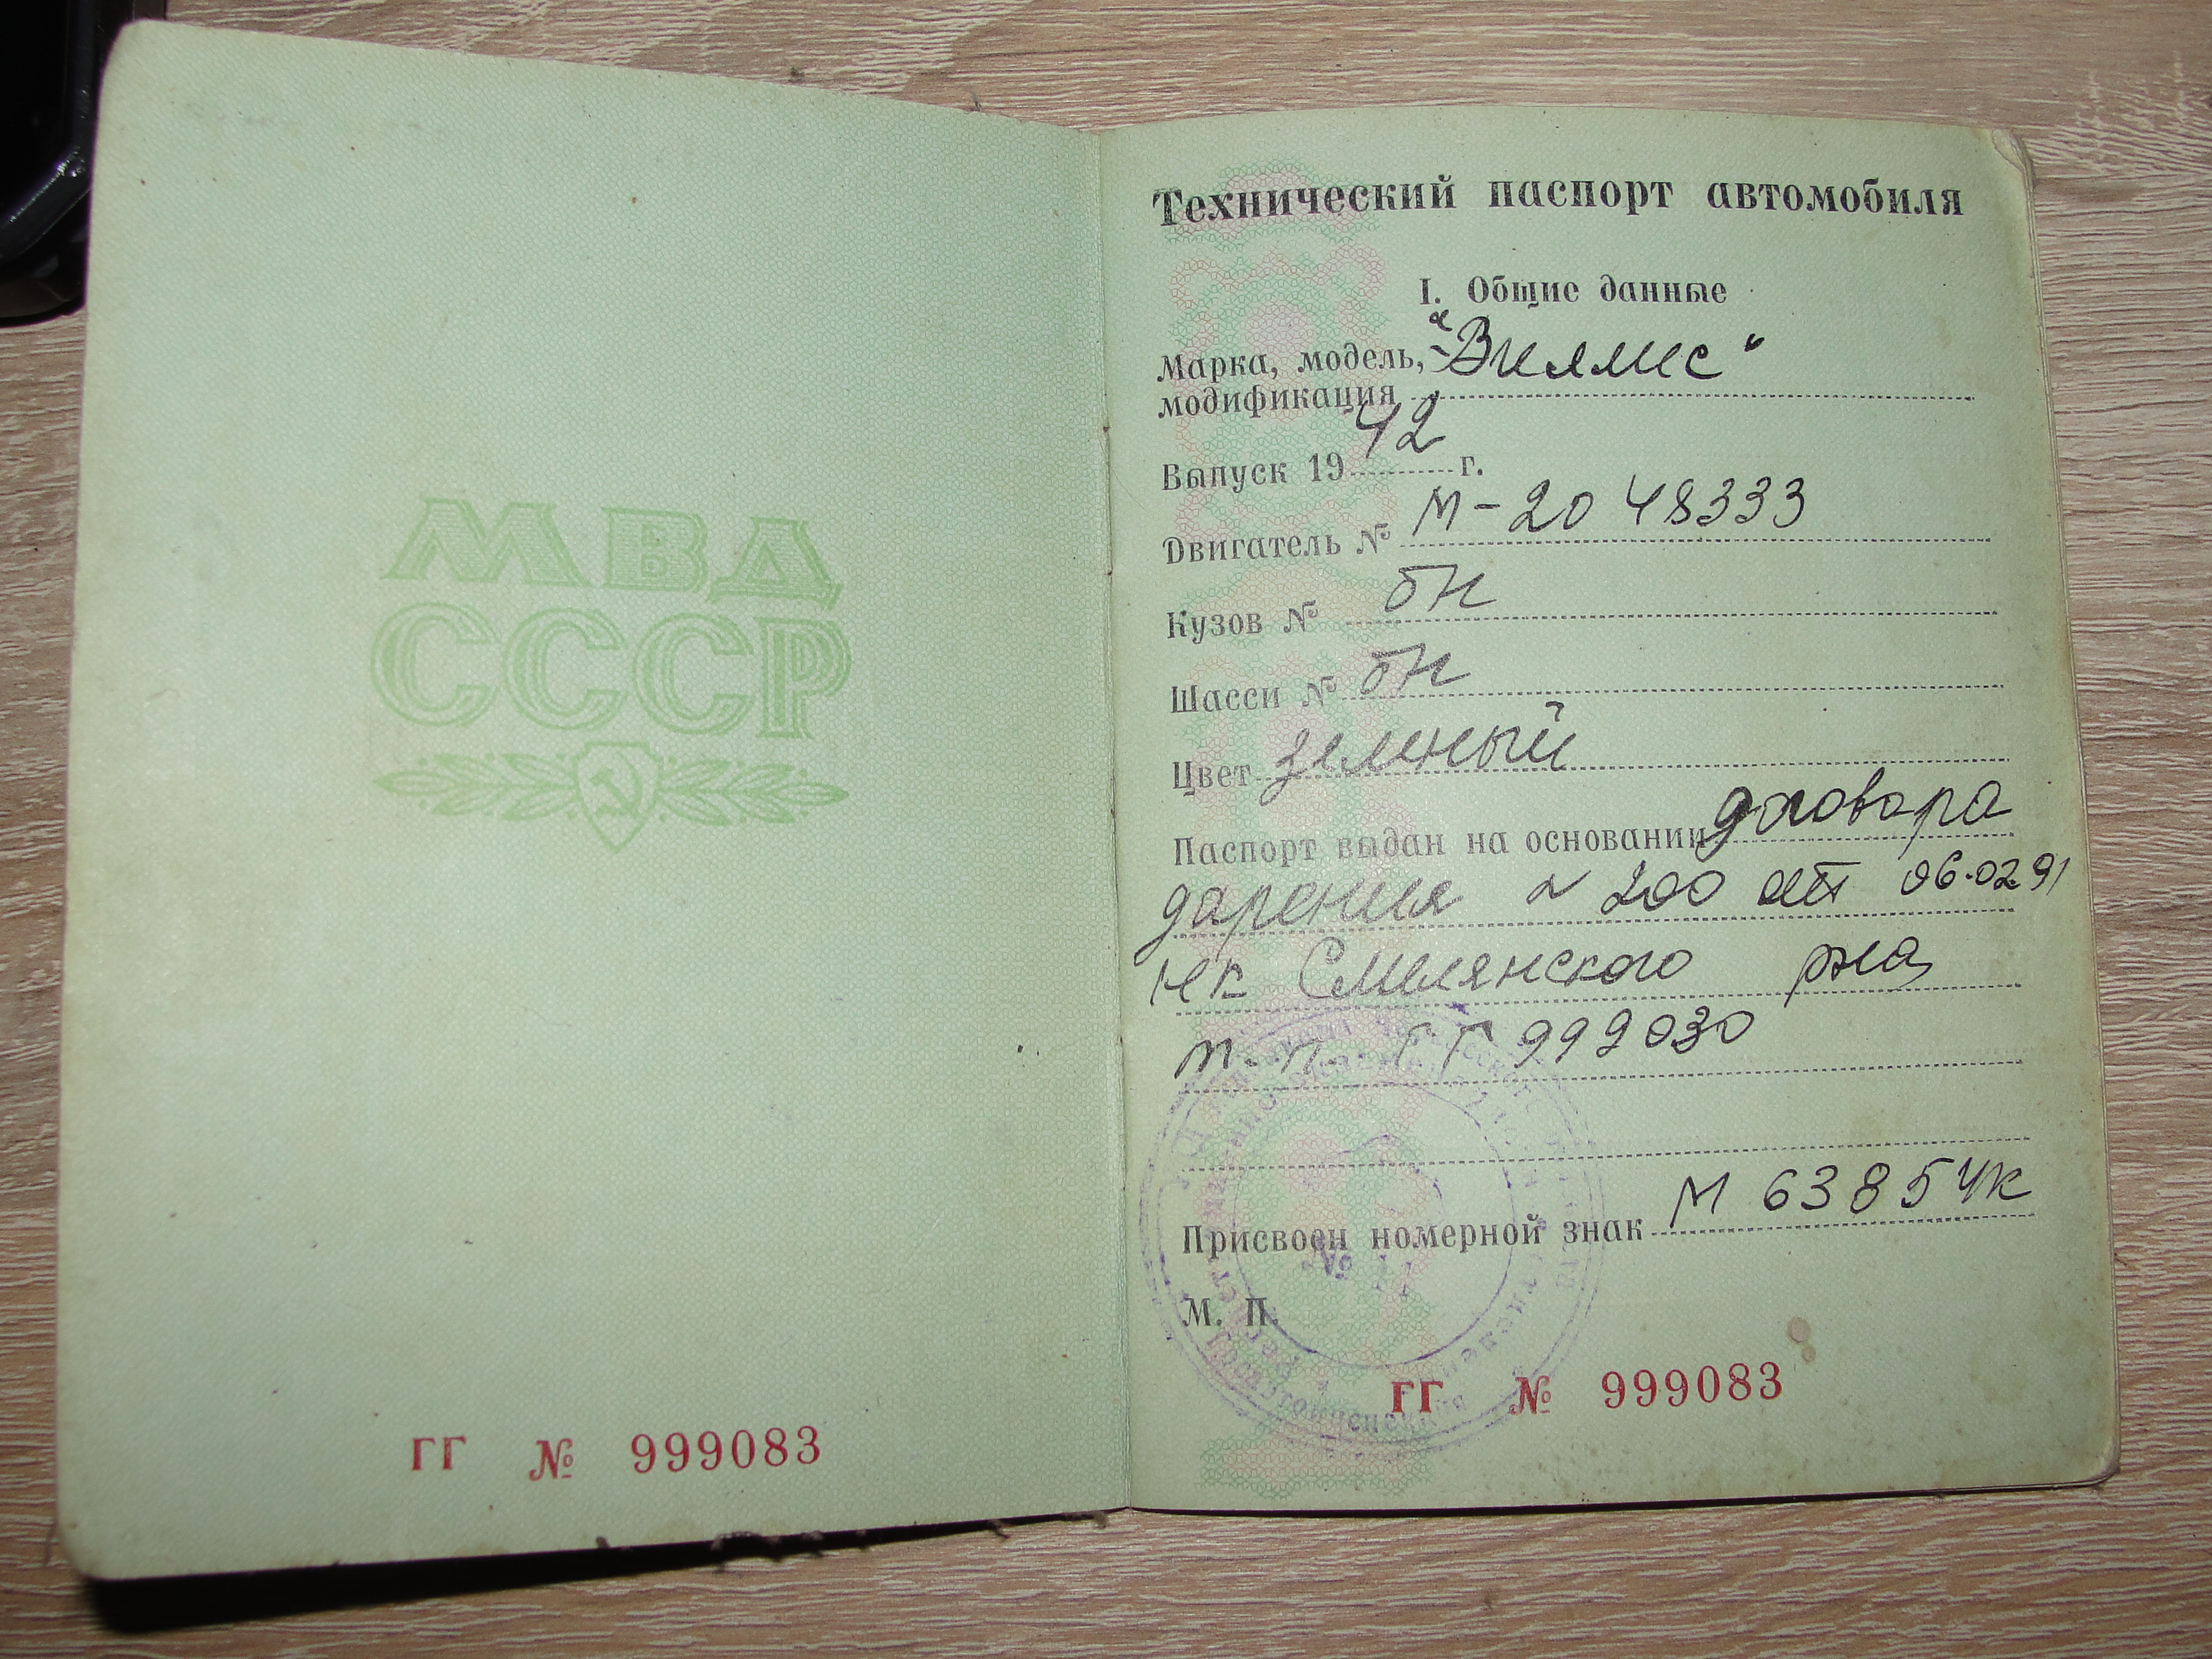 МВД
СССР
ГГ № 999083
Технический паспорт автомобиля
I. Общие данные
Марка, модель, "Виллис"
модификация
Выпуск 19 42 г.
Двигатель № М-20 48333
Кузов № бн
Шасси № бн
Цвет зеленый
Паспорт выдан на основании договора
дарения № 200 от 06.02.91
нк Смелянского р-на
т.п. ГГ 999030
Присвоен номерной знак М 6385 ЧК
М. П.
ГГ № 999083